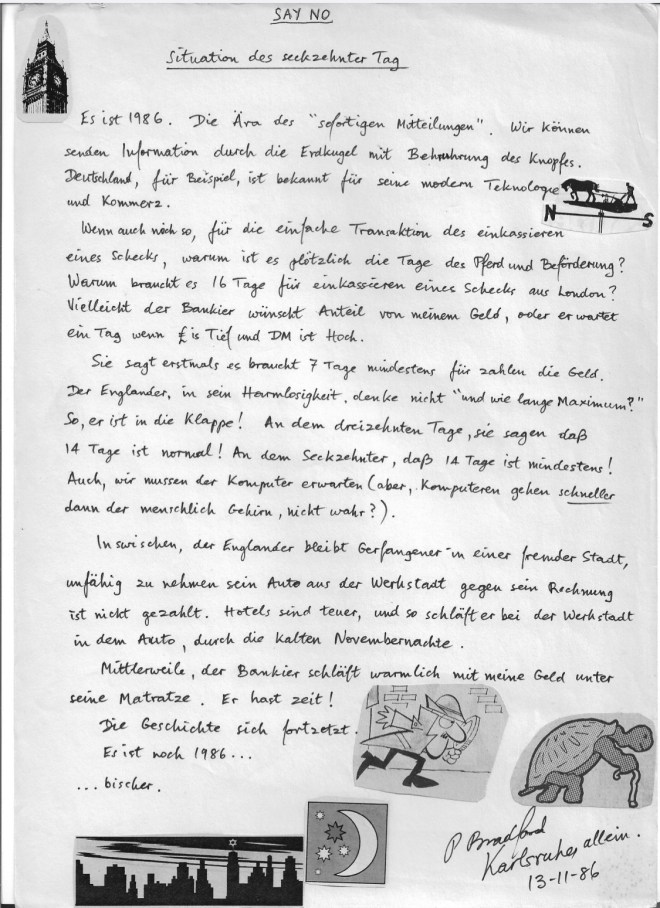 SAY NO
Situation des seckzehnter Tag
Es ist 1986. Die Ära des "sofortigen Mitteilungen". Wir können
senden Information durch die Erdkugel mit Behruhrung des Knopfes.
Deutschland, für Beispiel, ist bekannt für seine modern Teknologie
und Kommerz.
N S
Wenn auch noch so, für die einfache Transaktion des einkassieren
eines Schecks, warum ist es plötzlich die Tage des Pferd und Beförderung?
Warum braucht es 16 Tage für einkassieren eines Schecks aus London?
Vielleicht der Bankier wünscht Anteil von meinem Geld, oder er wartet
ein Tag wenn £ is Tief und DM ist Hoch.
Sie sagt erstmals es braucht 7 Tage mindestens für zahlen die Geld.
Der Englander, in sein Harmlosigkeit, denke nicht "und wie lange Maximum?"
So, er ist in die Klappe! An dem dreizehnten Tage, sie sagen daß
14 Tage ist normal! An dem Seckzehnter, daß 14 Tage ist mindestens!
Auch, wir mussen der Komputer erwarten (aber, Komputeren gehen schneller
dann der menschlich Gehirn, nicht wahr?).
Inswischen, der Englander bleibt Gerfangener in einer fremder Stadt,
unfähig zu nehmen sein Auto aus der Werkstadt gegen sein Rechnung
ist nicht gezahlt. Hotels sind teuer, und so schläft er bei der Werkstadt
in dem Auto, durch die kalten Novembernachte.
Mittlerweile, der Bankier schläft warmlich mit meine Geld unter
seine Matratze. Er hast zeit!
Die Geschichte sich fortzetzt.
Es ist noch 1986...
...bischer.
P Bradford
Karlsruhe, allein.
13-11-86